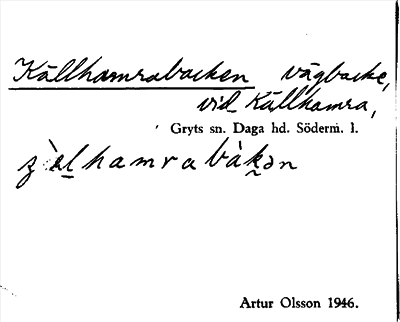 Källhamrabacken vägbacke,
vid Källhamra,
Gryts sn. Daga hd. Söderm. l.
hamrabàkən
Artur Olsson 1946.